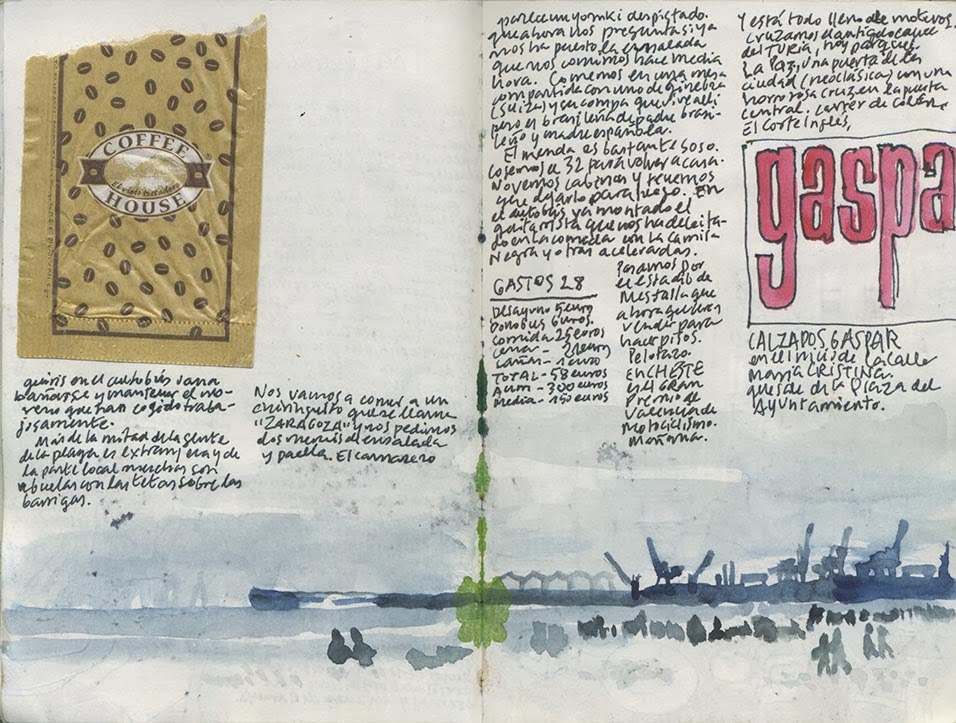 COFFEE
El viejo tostadero
HOUSE
guiris en el autobús van a
bañarse y mantener el mo-
reno que han cogido traba-
josamente.
Más de la mitad de la gente
de la playa es extranjera y de
la parte local muchas son
abuelas con las tetas sobre las
barrigas.
Nos vamos a comer a un
chiringuito que se llama
"ZARAGOZA" y nos pedimos
dos menús de ensalada
y paella. El camarero
parece un yonki despistado.
que ahora nos pregunta si ya
nos ha puesto la ensalada
que nos comimos hace media
hora. Comemos en una mesa
compartida con uno de ginebra
(suiza) y su compa que vive alli
pero es brasileña de padre brasi-
leño y madre española.
El menda es bastante soso.
Cogemos el 32 para volver a casa.
No vemos cabinas y tenemos
que dejarlo para luego. En
el autobús va montado el
guitarrista que nos ha deleita-
do en la comida con la Camisa
Negra y otras aceleradas.
GASTOS 28
Desayuno 5 euro
Bonobus 6 euros.
comida 25 euros
cena - 21 euros
caña - 1 euro
TOTAL - 58 euros
Acum - 300 euros
Media - 150 euros
Pasamos por
el estadio de
Mestalla que
ahora quieren
vender para
hacer pisos.
Pelotazo.
EN CHESTE
y 4 GRAN
Premio de
Valencia de
Motociclismo.
Mañana.
Y está todo lleno de moteros.
Cruzamos el antiguo cauce
del TURIA, hoy parque.
La Paz, una puerta de la
ciudad (neoclásica) con una
horrorosa cruz en la puerta
central. Carrer de Colón.
El Corte Inglés,
gaspa
CALZADOS GASPAR
en el inicio de la calle
MARÍA CRISTINA.
que sale de la Plaza del
Ayuntamiento.